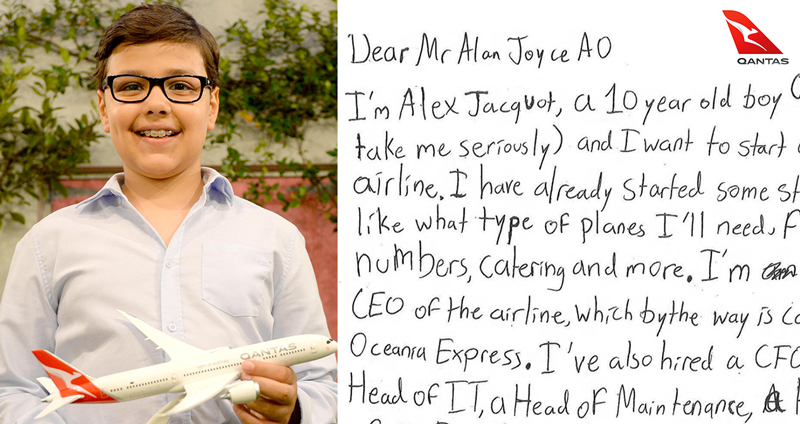 QANTAS
Dear Mr Alan Joyce AO
I'm Alex Jacquot, a 10 year old boy (
take me seriously) and I want to start
airline. I have already started some st
like what type of planes I'll need, F
numbers, catering and more. I'm
CEO of the airline, which by the way is ca
Oceania Express. I've also hired a CFO
Head of IT, a Head of Maintenance, a H
QANTAS